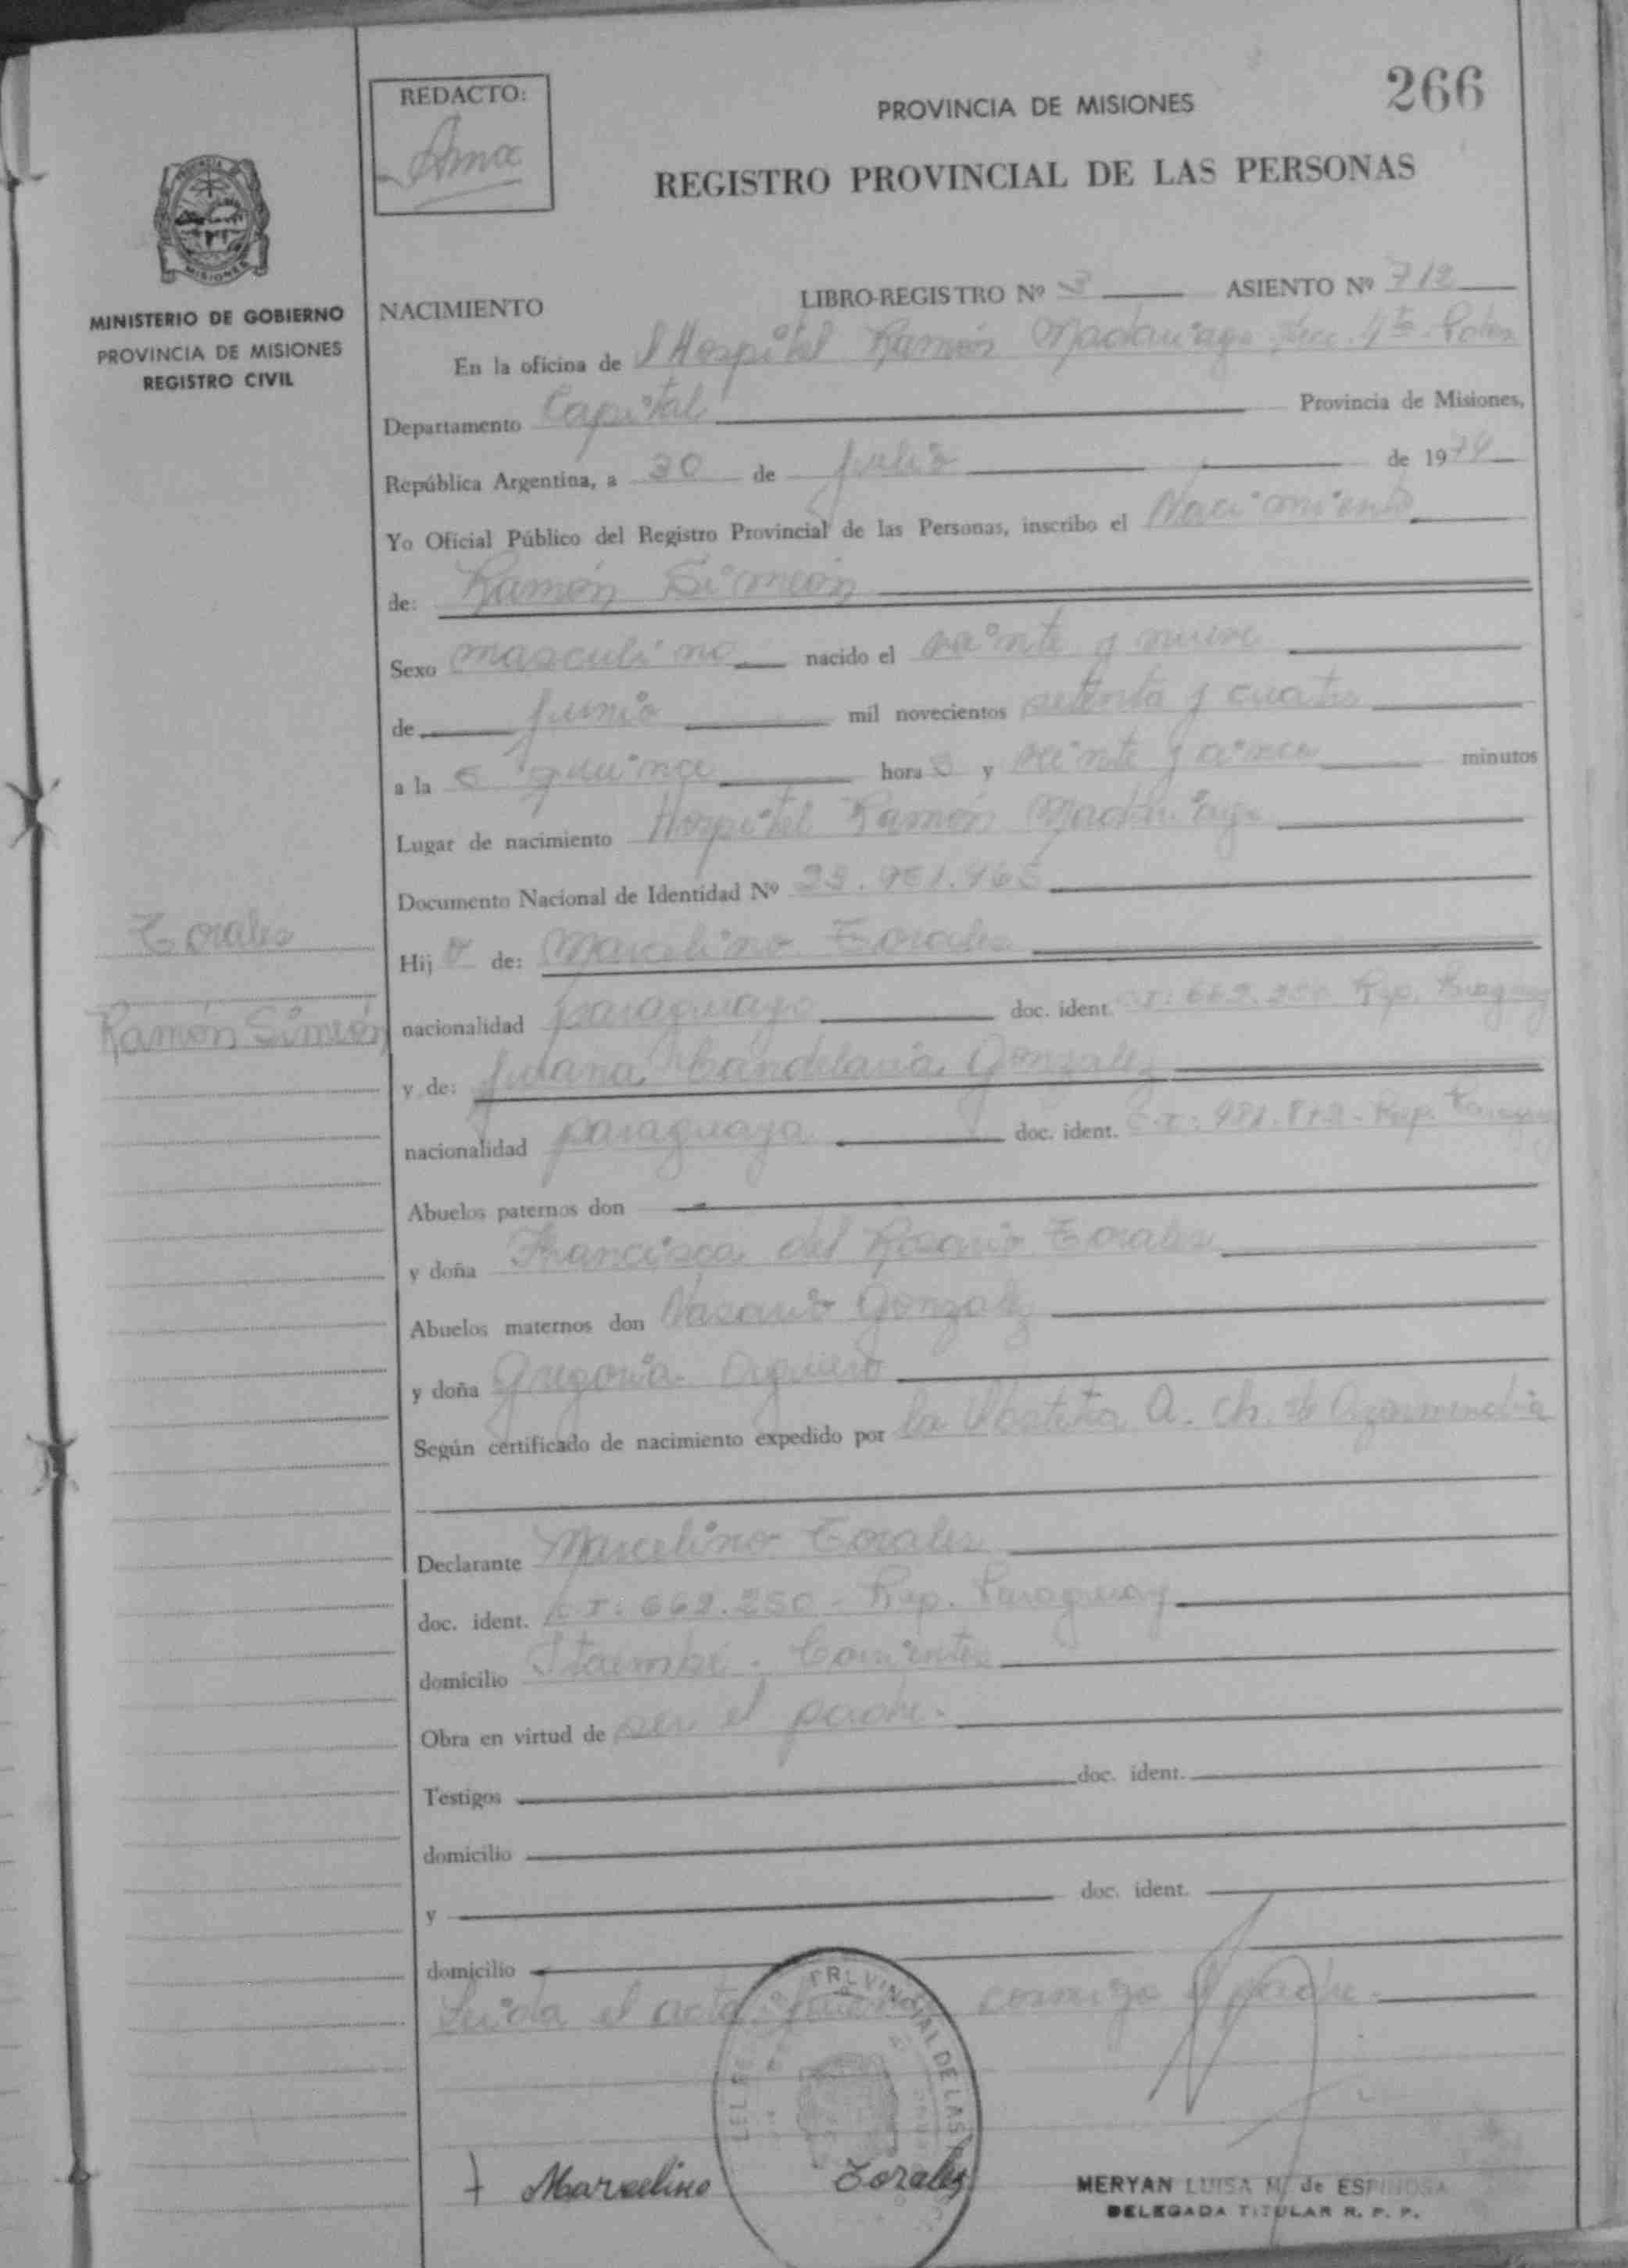 266
REDACTO:
PROVINCIA DE MISIONES
REGISTRO PROVINCIAL DE LAS PERSONAS
MISIONES
MINISTERIO DE GOBIERNO
PROVINCIA DE MISIONES
REGISTRO CIVIL
NACIMIENTO LIBRO-REGISTRO Nº 3 ASIENTO Nº 712
En la oficina de l Hospital Ramón Madariaga Secc. 4ta
Departamento Capital Provincia de Misiones,
República Argentina, a 30 de julio de 1974
Yo Oficial Público del Registro Provincial de las Personas, inscribo el Nacimiento
de: Ramón Simeón
Sexo masculino nacido el veinte y nueve
de junio mil novecientos setenta y cuatro
a la s quince hora s y veinte y cinco minutos
Lugar de nacimiento Hospital Ramón Madariaga
Documento Nacional de Identidad Nº
Torales
Hij o de: Marcelino Torales
Ramón Simeón
nacionalidad paraguayo doc. ident. C.I: 662.250 Rep. Paraguay
y de: Juana Candelaria Gonzalez
nacionalidad paraguaya doc. ident. C.I: Rep. Paraguay
Abuelos paternos don
y doña Francisca del Rosario Torales
Abuelos maternos don Nasario Gonzalez
y doña Gregoria
Según certificado de nacimiento expedido por la Obstetra A. Ch. de
Declarante Marcelino Torales
doc. ident. C.I: 662.250 - Rep. Paraguay
domicilio Corrientes
Obra en virtud de ser el padre.
Testigos doc. ident.
domicilio
y doc. ident.
domicilio
Leída el acta conmigo el padre.
Marcelino Torales
MERYAN LUISA M. de ESPINOSA
DELEGADA TITULAR R. P. P.